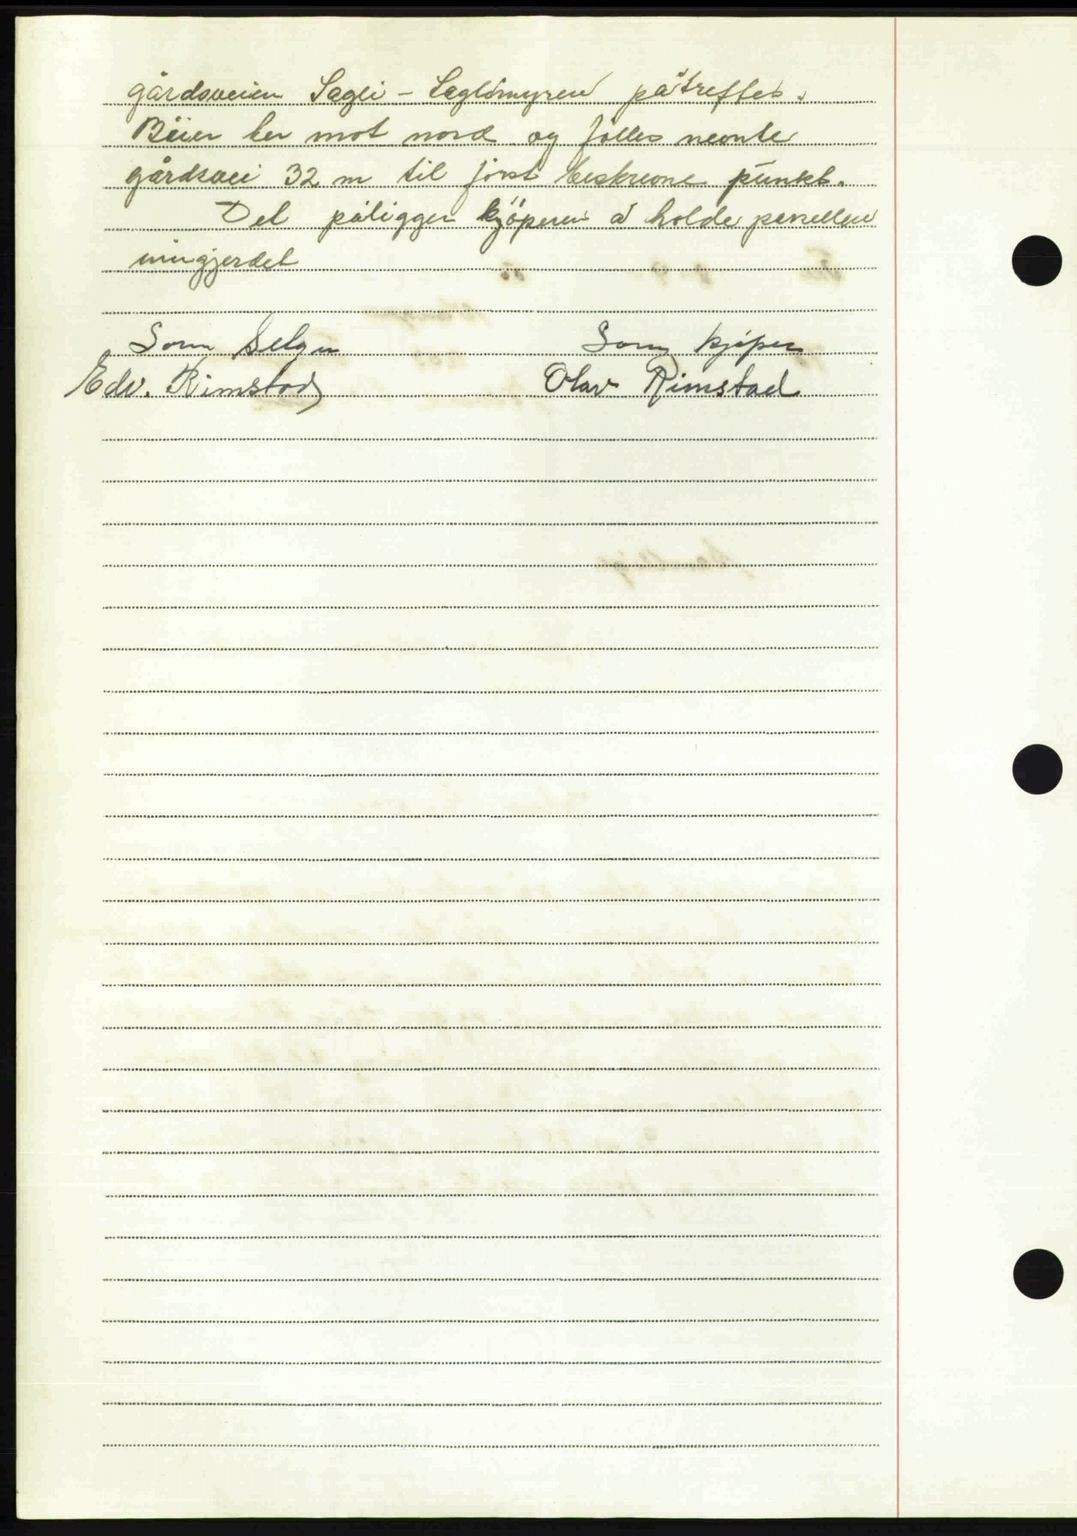 gårdsveien Sagli - Saglimyren påtreffes.
Böier her mot nord og fölles nevnte
gårdsvei 32 m til först beskrevne punkt.
Det påligger kjöperen å holde parsellen
inngjerdet
Som Selger
Som kjøper
Edv. Rimstad
Olav Rimstad